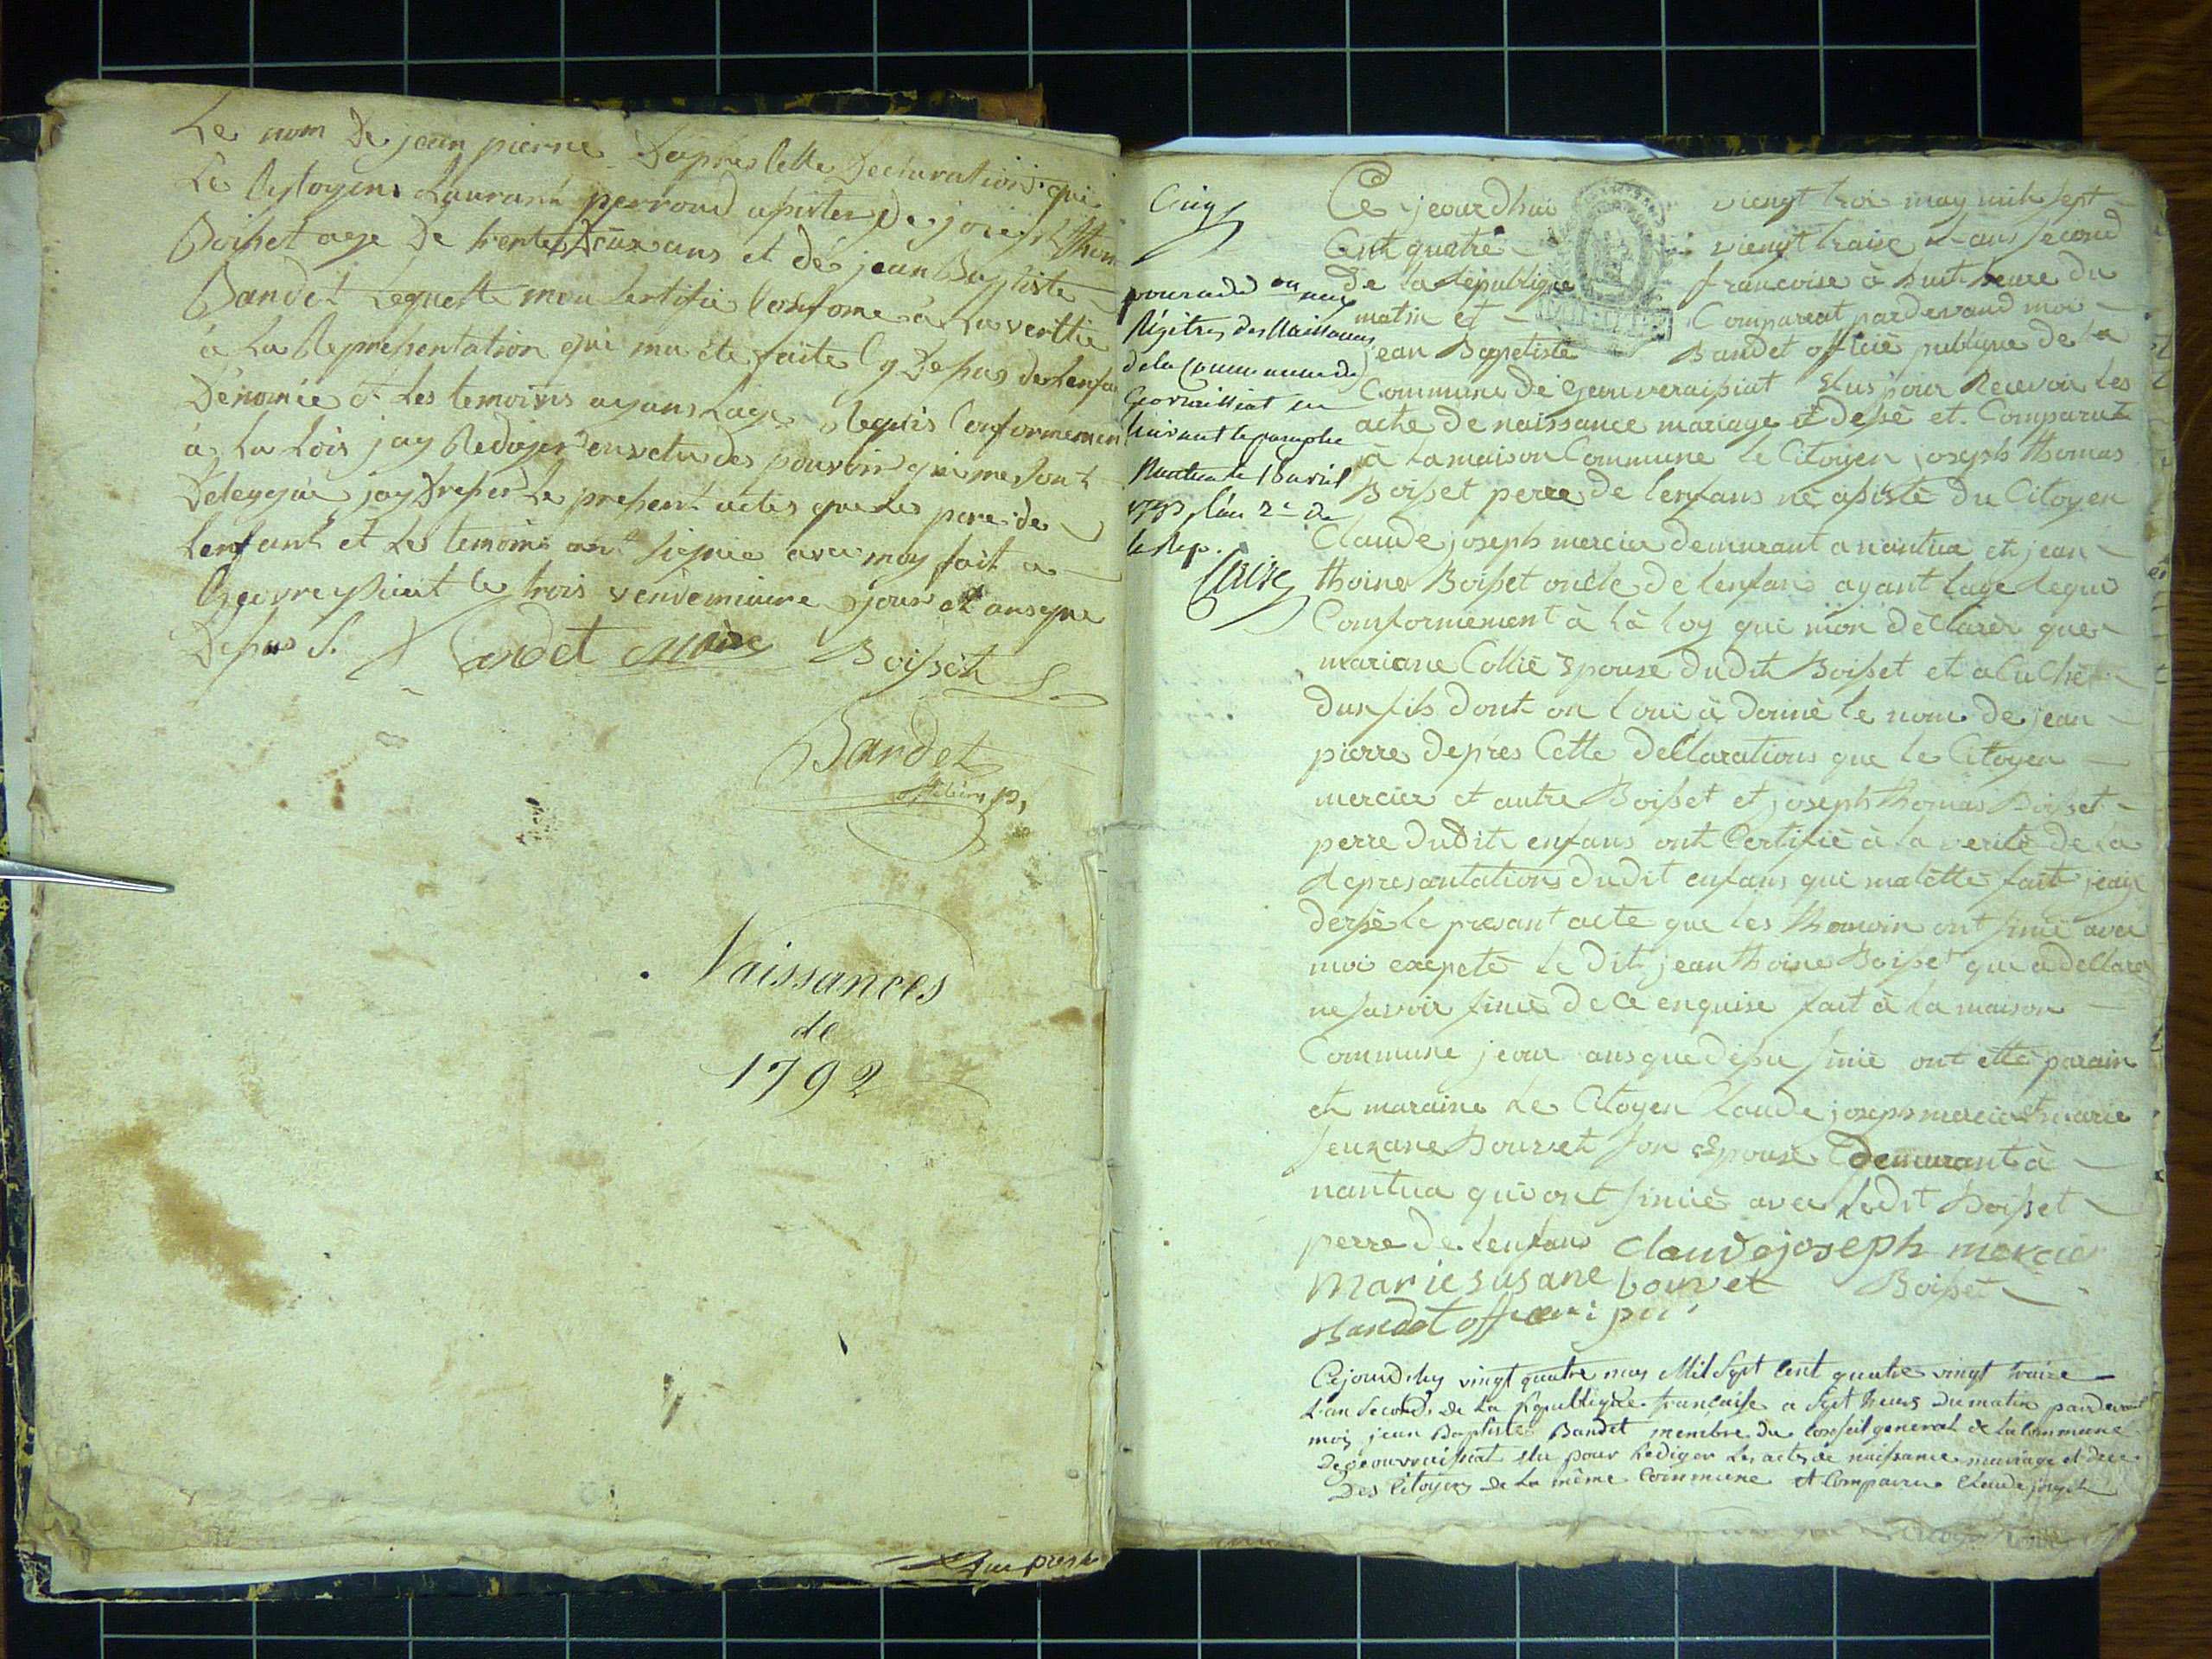 Le nom De jean pierre Dapres Cette Declaration qui
Le Citoyens Laurant perroud apister De joseph thom
Boisset age De trente Deux ans et dé jean Baptiste
Bandet Lequelle mon Certifie Conforme a La verttie
a La Representation qui ma été faite Cy Depas de Lenfan
Dénomée et Les temoins ayans Lage Requis Conformemen
à La Lois jay Rediger en vetu des pouvoir qui me Sont
Delegué jay Dresser Le present actes que Le pere de
Lenfant et Le temoins ont Signie avec moy fait a
Geovreyssiat le trois vendemiaire jour et an seque
Depus S. Bandet Maire Boisset
Bandet
officier p,
Naissances
de
1792
Cinq
pour un des
Régitres des Naissances
de la Commune de
Geovreissiat en
suivant le paraphe
Nantua le 18 avril
1793 l'an 2e de
la Rep.
Ce jeourdhui viengt troi may mil sept
Cent quatre viengt traise L an second
de la République francoise à huit heure du
matin et Compareat pardevand moi
jean Bapetiste Bandet officié publique de la
Commune de Geauveraissiat Elus pour Recevoir Les
acte de naissance mariage et dessè et Comparut
à la maison Commune le Citoyen joseph thomas
Boisset perre de lenfans né asisté du Citoyen
Claude joseph mercier demurant a nantua et jean
thoine Boisset oncle de lenfans ayant lage requi
Comformément à la Loy qui mon dèClarér que
mariane Collié Epouse dudit Boisset et aCuChé
dun fils dont on loui à donnè le nom de jean
pierre depres Cette deClarations que le Citoyen
mercier et autre Boisset et joseph thomas Boisset
perre dudit enfans ont Certifié à la verite de La
Representations dudit enfans qui mateté fait jeay
dersè le presant acte que les thomoin ont sinié avec
moi exepeté le dit jean thoine Boisset qui a deClare
ne savoir sinié de Ce enquise fait à la maison
Commune jeour ans que desu sinié ont etté parain
et maraine Le Citoyen Claude joseph mercier et marie
seuzane Bouvet son Epouse demurant à
nantua qui ont sinié avec ledit Boisset
perre de lenfans claude joseph mercier
marie susane bouvet Boisset
Bandet
Cejourdhuy vingt quatre may Mil Sept Cent quatre vingt traize
L'an second de La République francaise a Sept heures Du matin pardevant
moy jean Baptiste Bandet membre du Conseil general de La Commune
De geouvraissiat Elu pour Rediger Les actes de naissance mariage et dece
Des Citoyens de La même Commune et Comparru Claude joseph